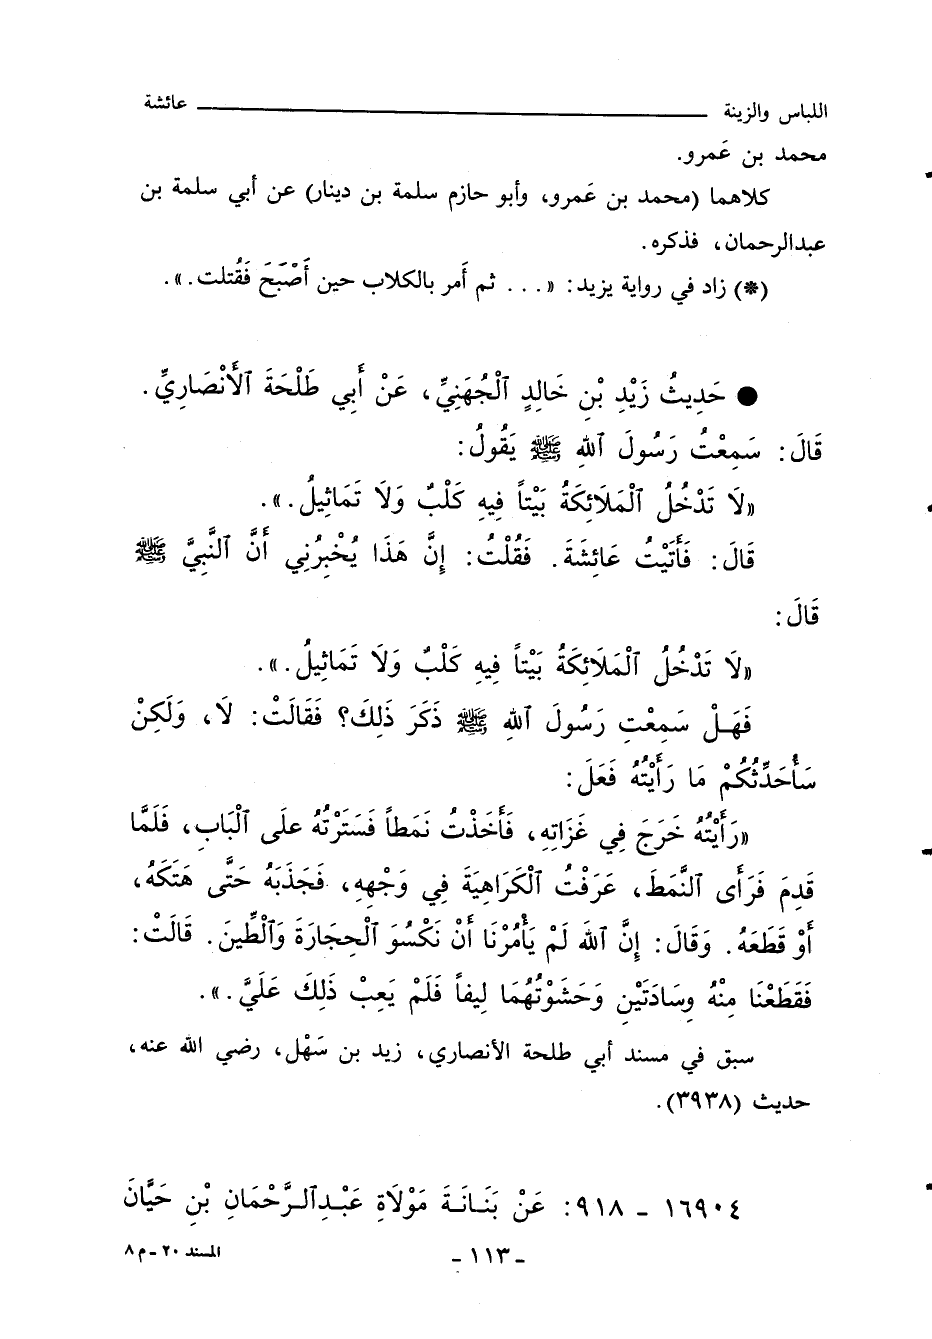 اللباس والزينة عائشة
محمد بن عَمرو.
كلاهما (محمد بن عَمرو، وأبو حازم سلمة بن دينار) عن أبي سلمة بن
عبدالرحمان، فذكره.
(*) زاد في رواية يزيد: «... ثم أَمر بالكلاب حين أَصْبَحَ فَقُتلت.».
● حَدِيثُ زَيْدِ بْنِ خَالِدٍ ٱلْجُهَنِيِّ، عَنْ أَبِي طَلْحَةَ ٱلْأَنْصَارِيِّ.
قَالَ: سَمِعْتُ رَسُولَ ٱللهِ ﷺ يَقُولُ:
«لَا تَدْخُلُ ٱلْمَلَائِكَةُ بَيْتاً فِيهِ كَلْبٌ وَلَا تَمَاثِيلُ.».
قَالَ: فَأَتَيْتُ عَائِشَةَ. فَقُلْتُ: إِنَّ هَذَا يُخْبِرُنِي أَنَّ ٱلنَّبِيَّ ﷺ
قَالَ:
«لَا تَدْخُلُ ٱلْمَلَائِكَةُ بَيْتاً فِيهِ كَلْبٌ وَلَا تَمَاثِيلُ.».
فَهَلْ سَمِعْتِ رَسُولَ ٱللهِ ﷺ ذَكَرَ ذَلِكَ؟ فَقَالَتْ: لَا، وَلَكِنْ
سَأُحَدِّثُكُمْ مَا رَأَيْتُهُ فَعَلَ:
«رَأَيْتُهُ خَرَجَ فِي غَزَاتِهِ، فَأَخَذْتُ نَمَطاً فَسَتَرْتُهُ علَى ٱلْبَابِ، فَلَمَّا
قَدِمَ فَرَأَى ٱلنَّمَطَ، عَرَفْتُ ٱلْكَرَاهِيَةَ فِي وَجْهِهِ، فَجَذَبَهُ حَتَّى هَتَكَهُ،
أَوْ قَطَعَهُ. وَقَالَ: إِنَّ ٱللهَ لَمْ يَأْمُرْنَا أَنْ نَكْسُوَ ٱلْحِجَارَةَ وَٱلْطِّينَ. قَالَتْ:
فَقَطَعْنَا مِنْهُ وِسَادَتَيْنِ وَحَشَوْتُهُمَا لِيفاً فَلَمْ يَعِبْ ذَلِكَ عَلَيَّ.».
سبق في مسند أبي طلحة الأنصاري، زيد بن سَهْل، رضي الله عنه،
حديث (٣٩٣٨).
١٦٩٠٤ - ٩١٨: عَنْ بَنَانَةَ مَوْلَاةِ عَبْدِٱلرَّحْمَانِ بْنِ حَيَّانَ
- ١١٣ - المسند ٢٠ - م ٨